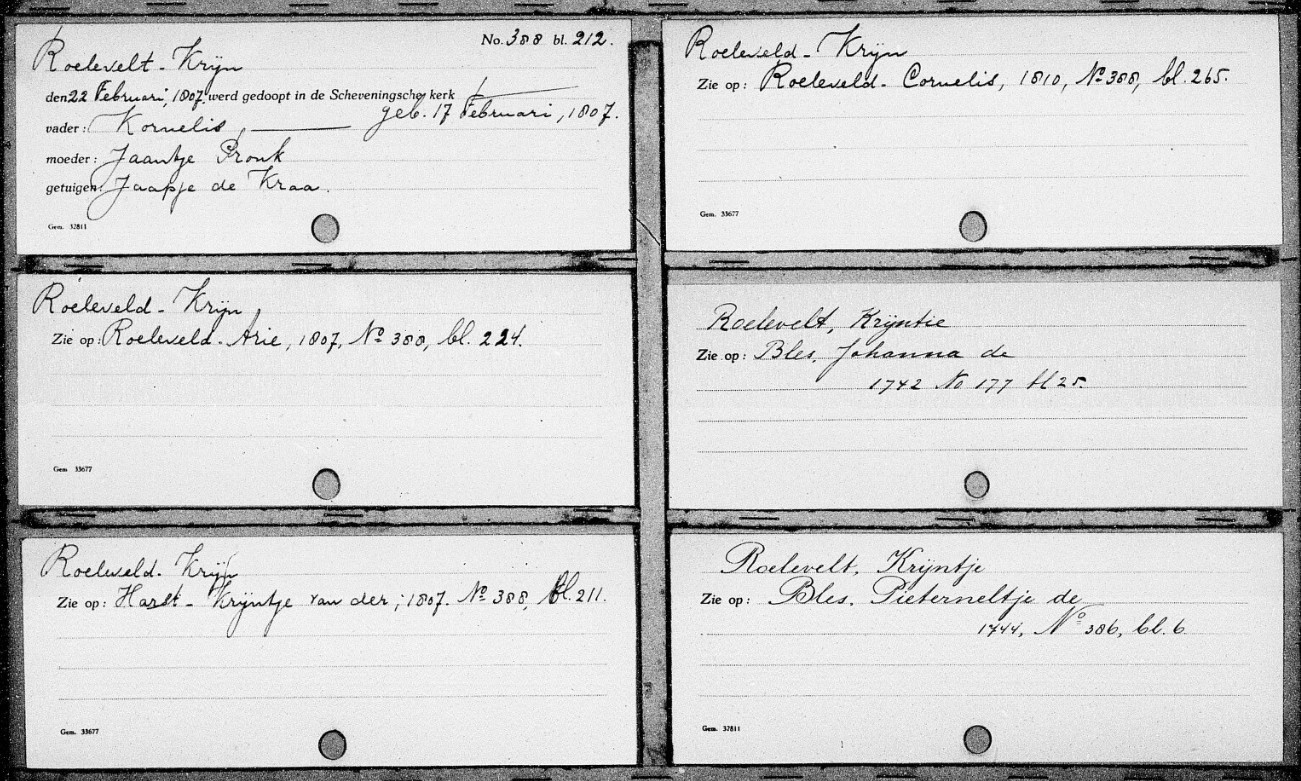 No. 388 bl. 212.
Roelevelt - Krijn
den 22 Februari, 1807, werd gedoopt in de Scheveningsche kerk
geb. 17 Februari, 1807.
vader: Kornelis,
moeder: Jaantje Pronk
getuigen: Jaapje de Kraa.
Gem. 37811
Roeleveld - Krijn
Zie op: Roeleveld - Arie, 1807, No 388, bl. 224.
Gem 33677
Roeleveld. Krijn
Zie op: Harst - Krijntje van der, 1807. No 388, bl. 211.
Gem. 33677
Roeleveld - Krijn
Zie op: Roeleveld - Cornelis, 1810, No 388, bl. 265.
Gem. 33677
Roelevelt, Krijntie
Zie op: Bles, Johanna de
1742 No 177 bl 25.
Roelevelt, Krijntje
Zie op: Bles, Pieterneltje de
1744, No 386, bl. 6
Gem. 37811